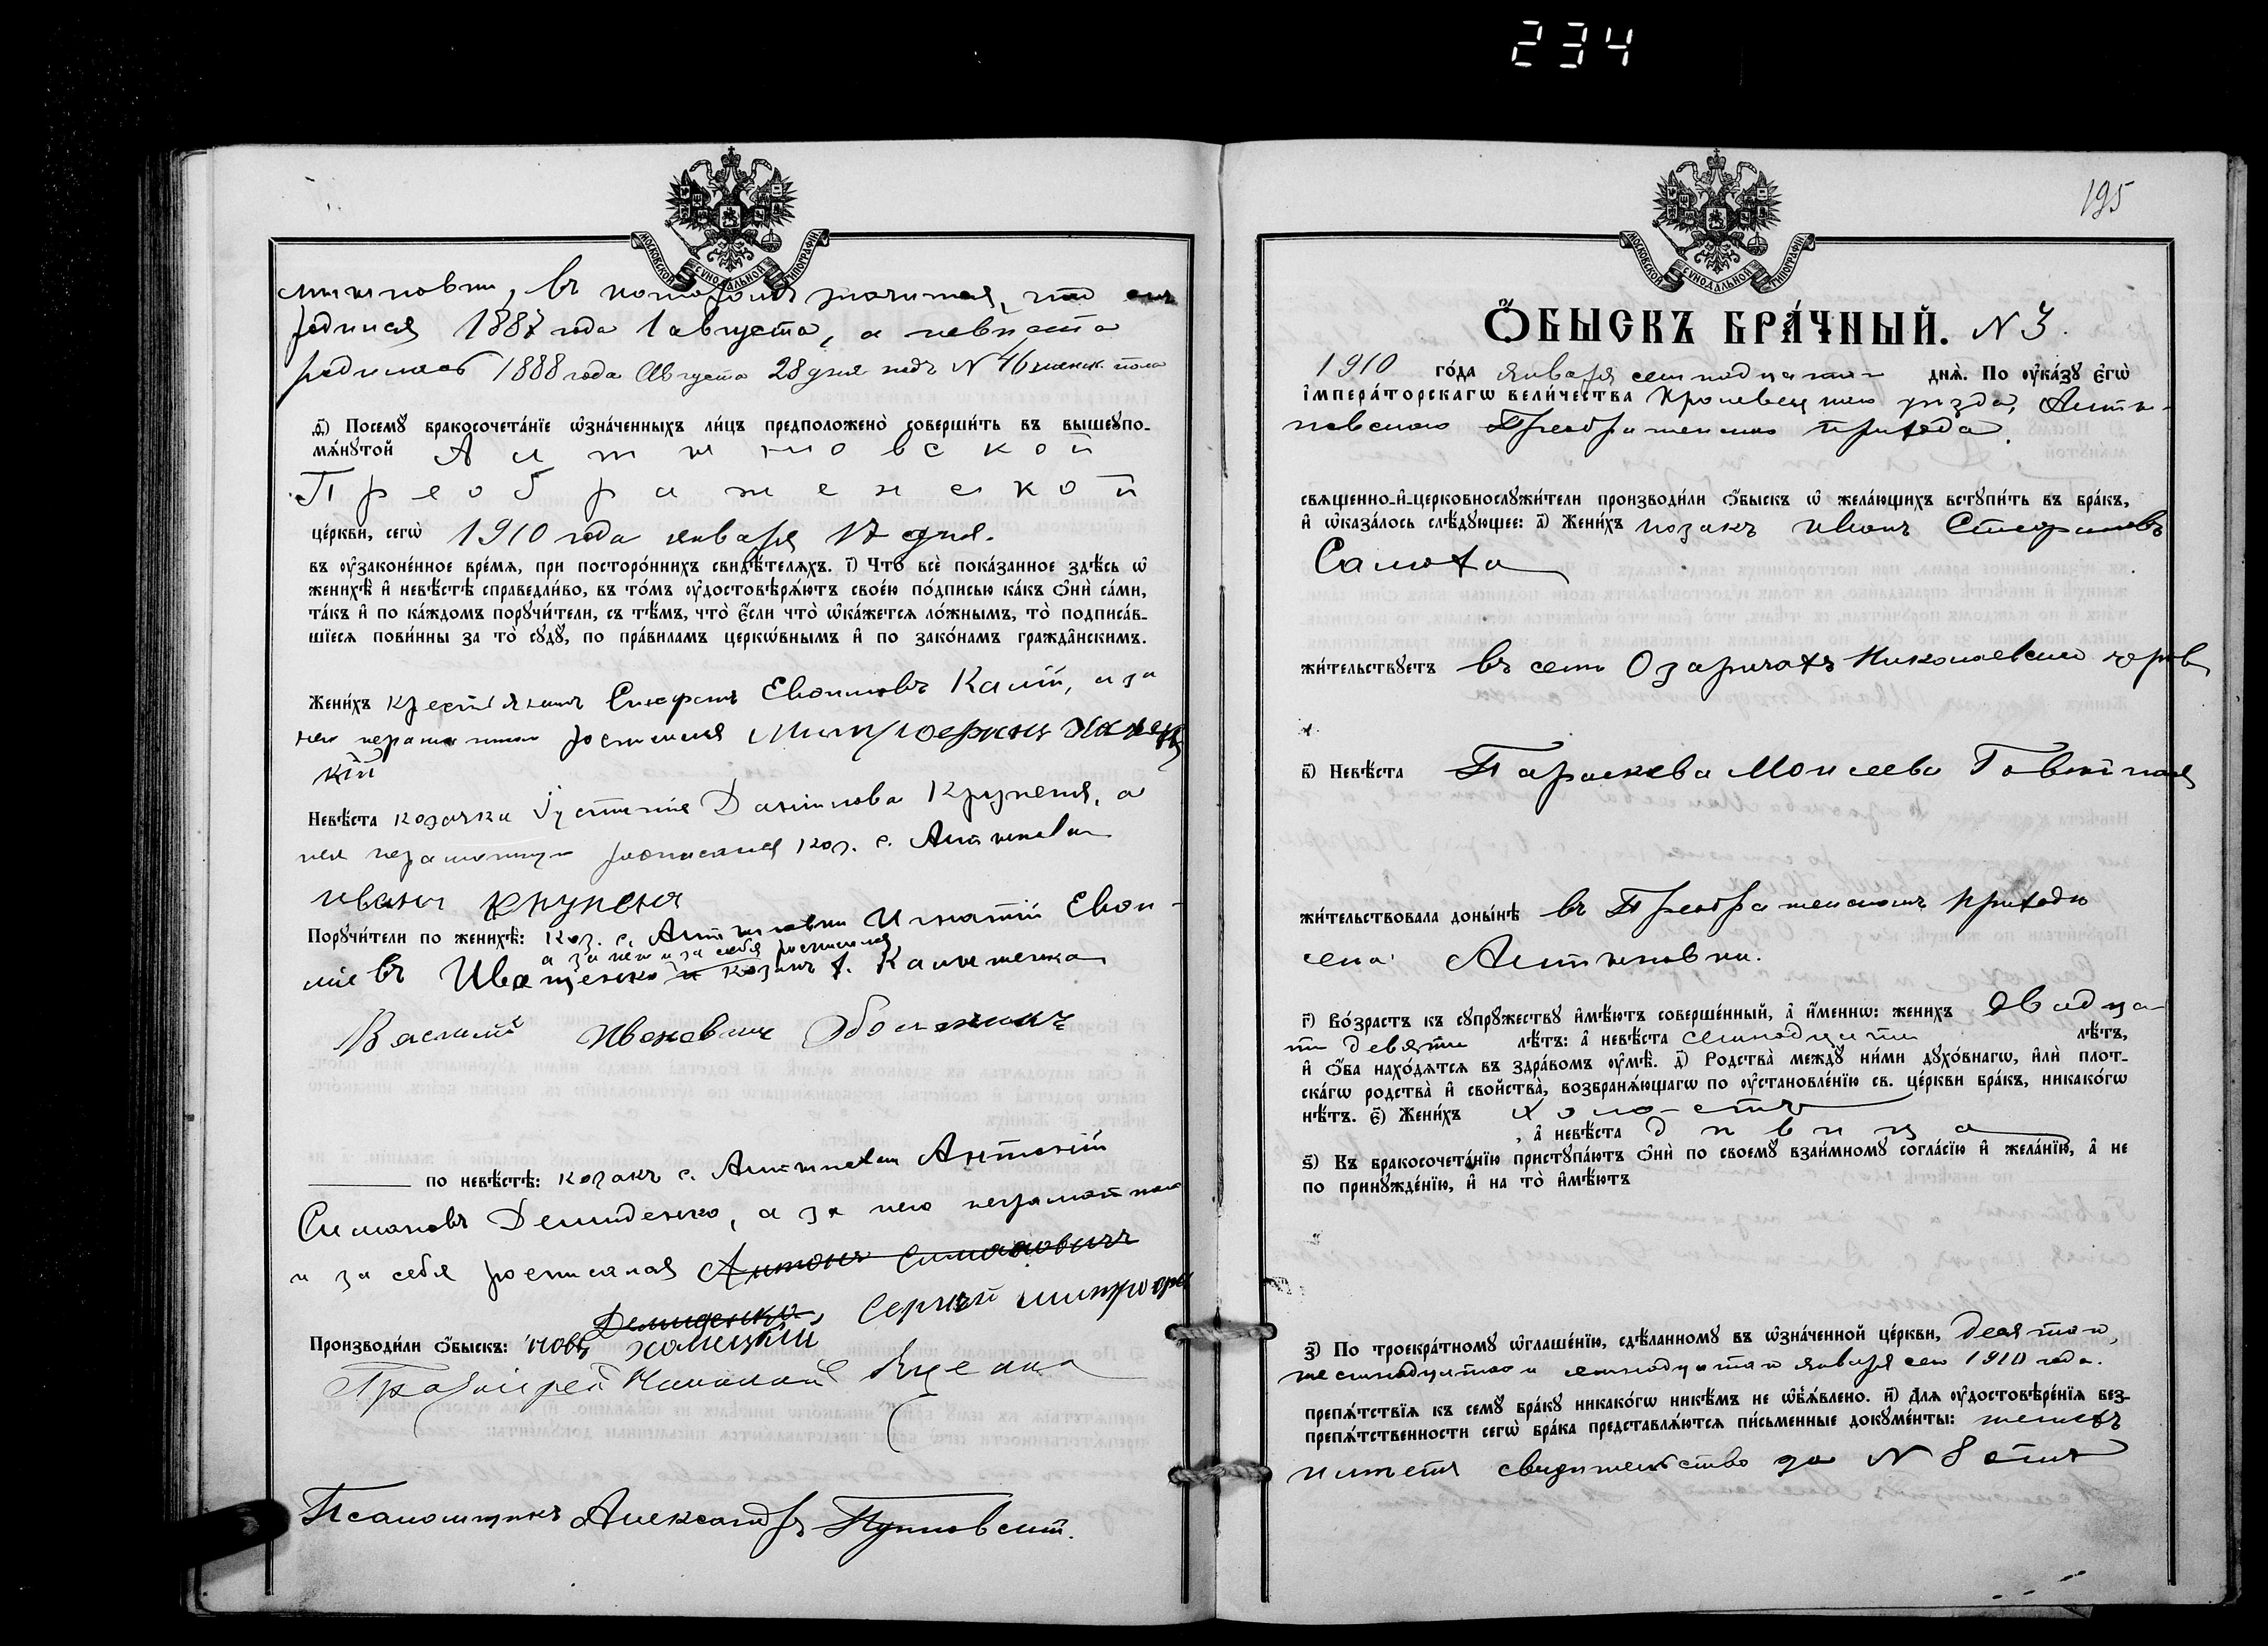 234
МОСКОВСКОЙ СѴНОДАЛЬНОЙ ТИПОГРАФІИ
родился 1887 года 1 августа, а невѣста
родилась 1888 года Августа 28 дня подъ N 46 женск. пола
в҃) Посемꙋ̀ бракосочета́нїе ѡ҆зна́ченныхъ ли́цъ предположено̀ соверши́ть въ вышеꙋпо-
мѧ́нꙋтой Алтыновской
Преображенской
це́ркви, сегѡ̀ 1910 года января 17 дня.
въ ᲂу҆зако́ненное вре́мѧ, при посторо́ннихъ свидѣ́телѧхъ. і҃) Что̀ всѐ пока́занное здѣ́сь ѡ҆
женихѣ̀ и҆ невѣ́стѣ справедли́во, въ то́мъ ᲂу҆достовѣрѧ́ютъ свое́ю по́дписью ка́къ ѻ҆нѝ са́ми,
та́къ и҆ по ка́ждомъ порꙋчи́тели, съ тѣ́мъ, что̀ є҆́сли что̀ ѡ҆ка́жетсѧ ло́жнымъ, то̀ подписа́в-
шїесѧ пови́нны за то̀ сꙋдꙋ̀, по пра́виламъ церкѡ́внымъ и҆ по зако́намъ гражда̑нскимъ.
Жени́хъ крестьянинъ Евѳимовъ Калій, а за
него неграмотнаго росписался Митрофанъ
кій
Невѣ́ста козачка Іустинія Даніилова Крупеня, а
нея неграмотную росписался коз. с. Алтыновки
иванъ крупеня
Порꙋчи́тели по женихѣ̀: Коз. с. Алтыновки Игнатій Евѳи-
а за него и за себя росписался
міевъ Иващенко и козакъ
Василій Ивановичъ
по невѣ́стѣ: козакъ с. Алтыновки Антоній
Симоновъ Демиденко, а за него неграмотнаго
и за себя росписался Антонъ Симоновичъ
Демиденко, Сергѣй митрофа
Производи́ли ѻ҆́быскъ: новъ халецкій
Протоіерей Николай
Псаломщикъ Александръ
195
МОСКОВСКОЙ СѴНОДАЛЬНОЙ ТИПОГРАФІИ
Ѻ҆́БЫСКЪ БРА́ЧНЫЙ. N 3.
1910 го́да января семнадцатаго днѧ̀. По ᲂу҆ка́зꙋ є҆гѡ̀
і҆мпера́торскагѡ вели́чества Кролевецкаго уѣзда, Алты-
новскаго Преображенскаго прихода.
свѧще́нно-и҆-церковнослꙋжи́тели производи́ли ѻ҆́быскъ ѡ҆ жела́ющихъ встꙋпи́ть въ бра́къ,
и҆ ѡ҆каза́лось слѣ́дꙋющее: а҃) Жени́хъ козакъ иванъ Стефановъ
Салюха
жи́тельствꙋетъ въ селѣ Озаричахъ Николаевской церкв
в҃) Невѣ́ста Параскева Моисеева
жи́тельствовала доны́нѣ въ Преображенскомъ приходѣ
села Алтыновки.
г҃) Во́зрастъ къ сꙋпрꙋ́жествꙋ и҆мѣ́ютъ соверше́нный, а҆ и҆́меннѡ: жени́хъ двадца-
ти девяти лѣ́тъ: а҆ невѣ́ста семнадцати лѣ́тъ,
и҆ ѻ҆́ба нахо́дѧтсѧ въ здра́вомъ ᲂу҆мѣ̀. д҃) Родства̀ междꙋ̀ ни́ми дꙋхо́внагѡ, и҆лѝ плот-
ска́гѡ родства̀ и҆ свойства̀, возбранѧ́ющагѡ по ᲂу҆становле́нїю св. це́ркви бра́къ, никако́гѡ
нѣ́тъ. є҃) Жени́хъ холостъ
, а҆ невѣ́ста дѣвица
ѕ҃) Къ бракосочета́нїю пристꙋпа́ютъ ѻ҆нѝ по своемꙋ̀ взаи́мномꙋ согла́сїю и҆ жела́нїю, а҆ не
по принꙋжде́нїю, и҆ на то̀ и҆мѣ́ютъ
з҃) По троекра́тномꙋ ѡ҆глаше́нїю, сдѣ́ланномꙋ въ ѡ҆зна́ченной це́ркви, десятаго,
шестнадцатаго и семнадцатаго января сего 1910 года.
препѧ́тствїѧ къ семꙋ̀ бра́кꙋ никако́гѡ никѣ́мъ не ѡ҆б̾ѧ́влено. и҃) Длѧ ᲂу҆достовѣре́нїѧ без-
препѧ́тственности сегѡ̀ бра́ка представлѧ́ютсѧ пи́сьменные докꙋме́нты: женихъ
свидѣтельство за N 8